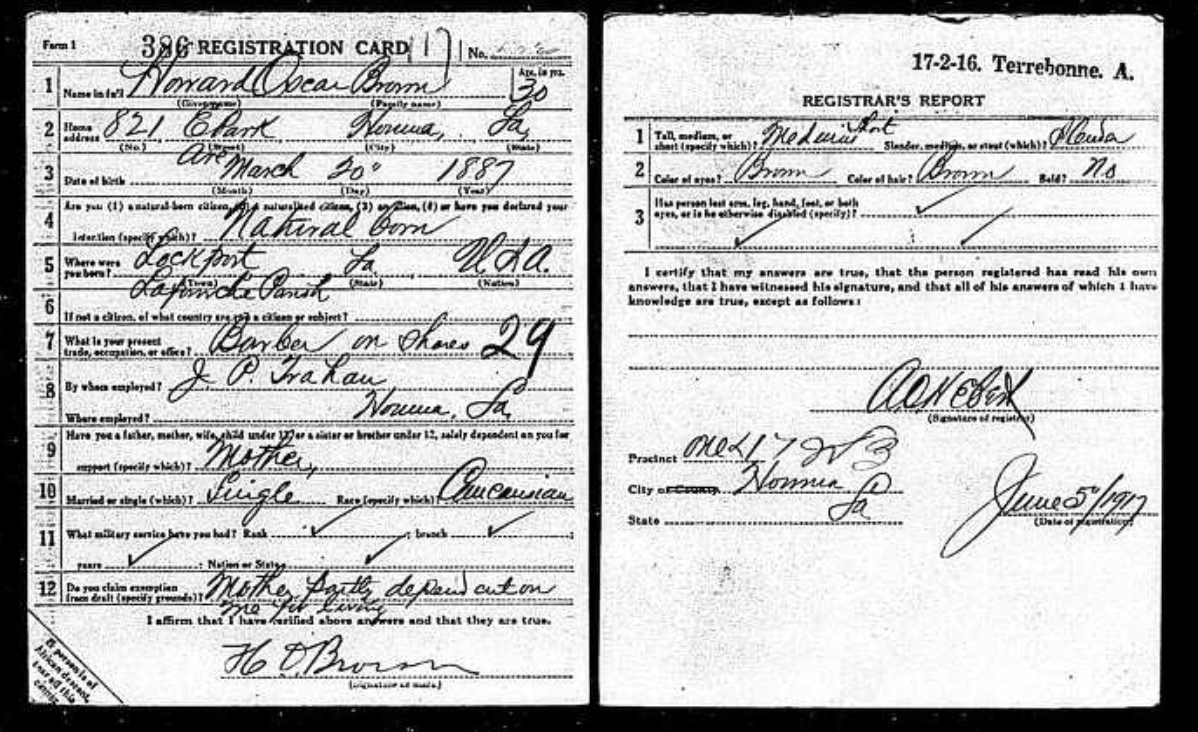 Form 1
386 REGISTRATION CARD No.
1 Name in full Howard Oscar Brown Age, in yrs. 30
(Given name) (Family name)
2 Home address 821 E Park Ave Houma, La,
(No.) (Street) (City) (State)
3 Date of birth March 20 1887
(Month) (Day) (Year)
4 Are you (1) a natural-born citizen, (2) a naturalized citizen, (3) an alien, (4) or have you declared your
intention (specify which)? Natural born
5 Where were you born? Lockport La. U.S.A.
(Town) (State) (Nation)
Lafourche Parish
6 If not a citizen, of what country are you a citizen or subject?
7 What is your present trade, occupation, or office? Barber on Shares 29
8 By whom employed? J. P. Trahan,
Where employed? Houma, La
9 Have you a father, mother, wife, child under 12, or a sister or brother under 12, solely dependent on you for
support (specify which)? Mother,
10 Married or single (which)? Single Race (specify which)? Caucausian
11 What military service have you had? Rank ; branch ;
years ; Nation or State
12 Do you claim exemption from draft (specify grounds)? Mother Partly dependent on
me for living
I affirm that I have verified above answers and that they are true.
H O Brown
(Signature or mark)
If person is of
African descent,
tear off this
corner
17-2-16. Terrebonne. A.
REGISTRAR'S REPORT
1 Tall, medium, or short (specify which)? Medium Short Slender, medium, or stout (which)?
2 Color of eyes? Brown Color of hair? Brown Bald? No
3 Has person lost arm, leg, hand, foot, or both
eyes, or is he otherwise disabled (specify)?
I certify that my answers are true, that the person registered has read his own
answers, that I have witnessed his signature, and that all of his answers of which I have
knowledge are true, except as follows:
(Signature of registrar)
Precinct
City or County Houma
State La
June 5/1917
(Date of registration)